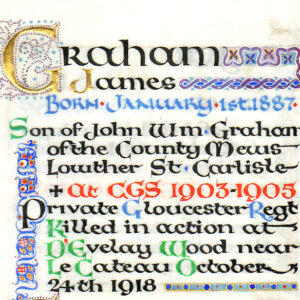 Graham
James
Born · January · 1st · 1887 ·
Son of John Wm · Graham
of the County Mews
Lowther St · Carlisle
+ at CGS 1903-1905
Private Gloucester · Regt
Killed in action at
D'Evelay Wood near
Le Cateau October
24th 1918